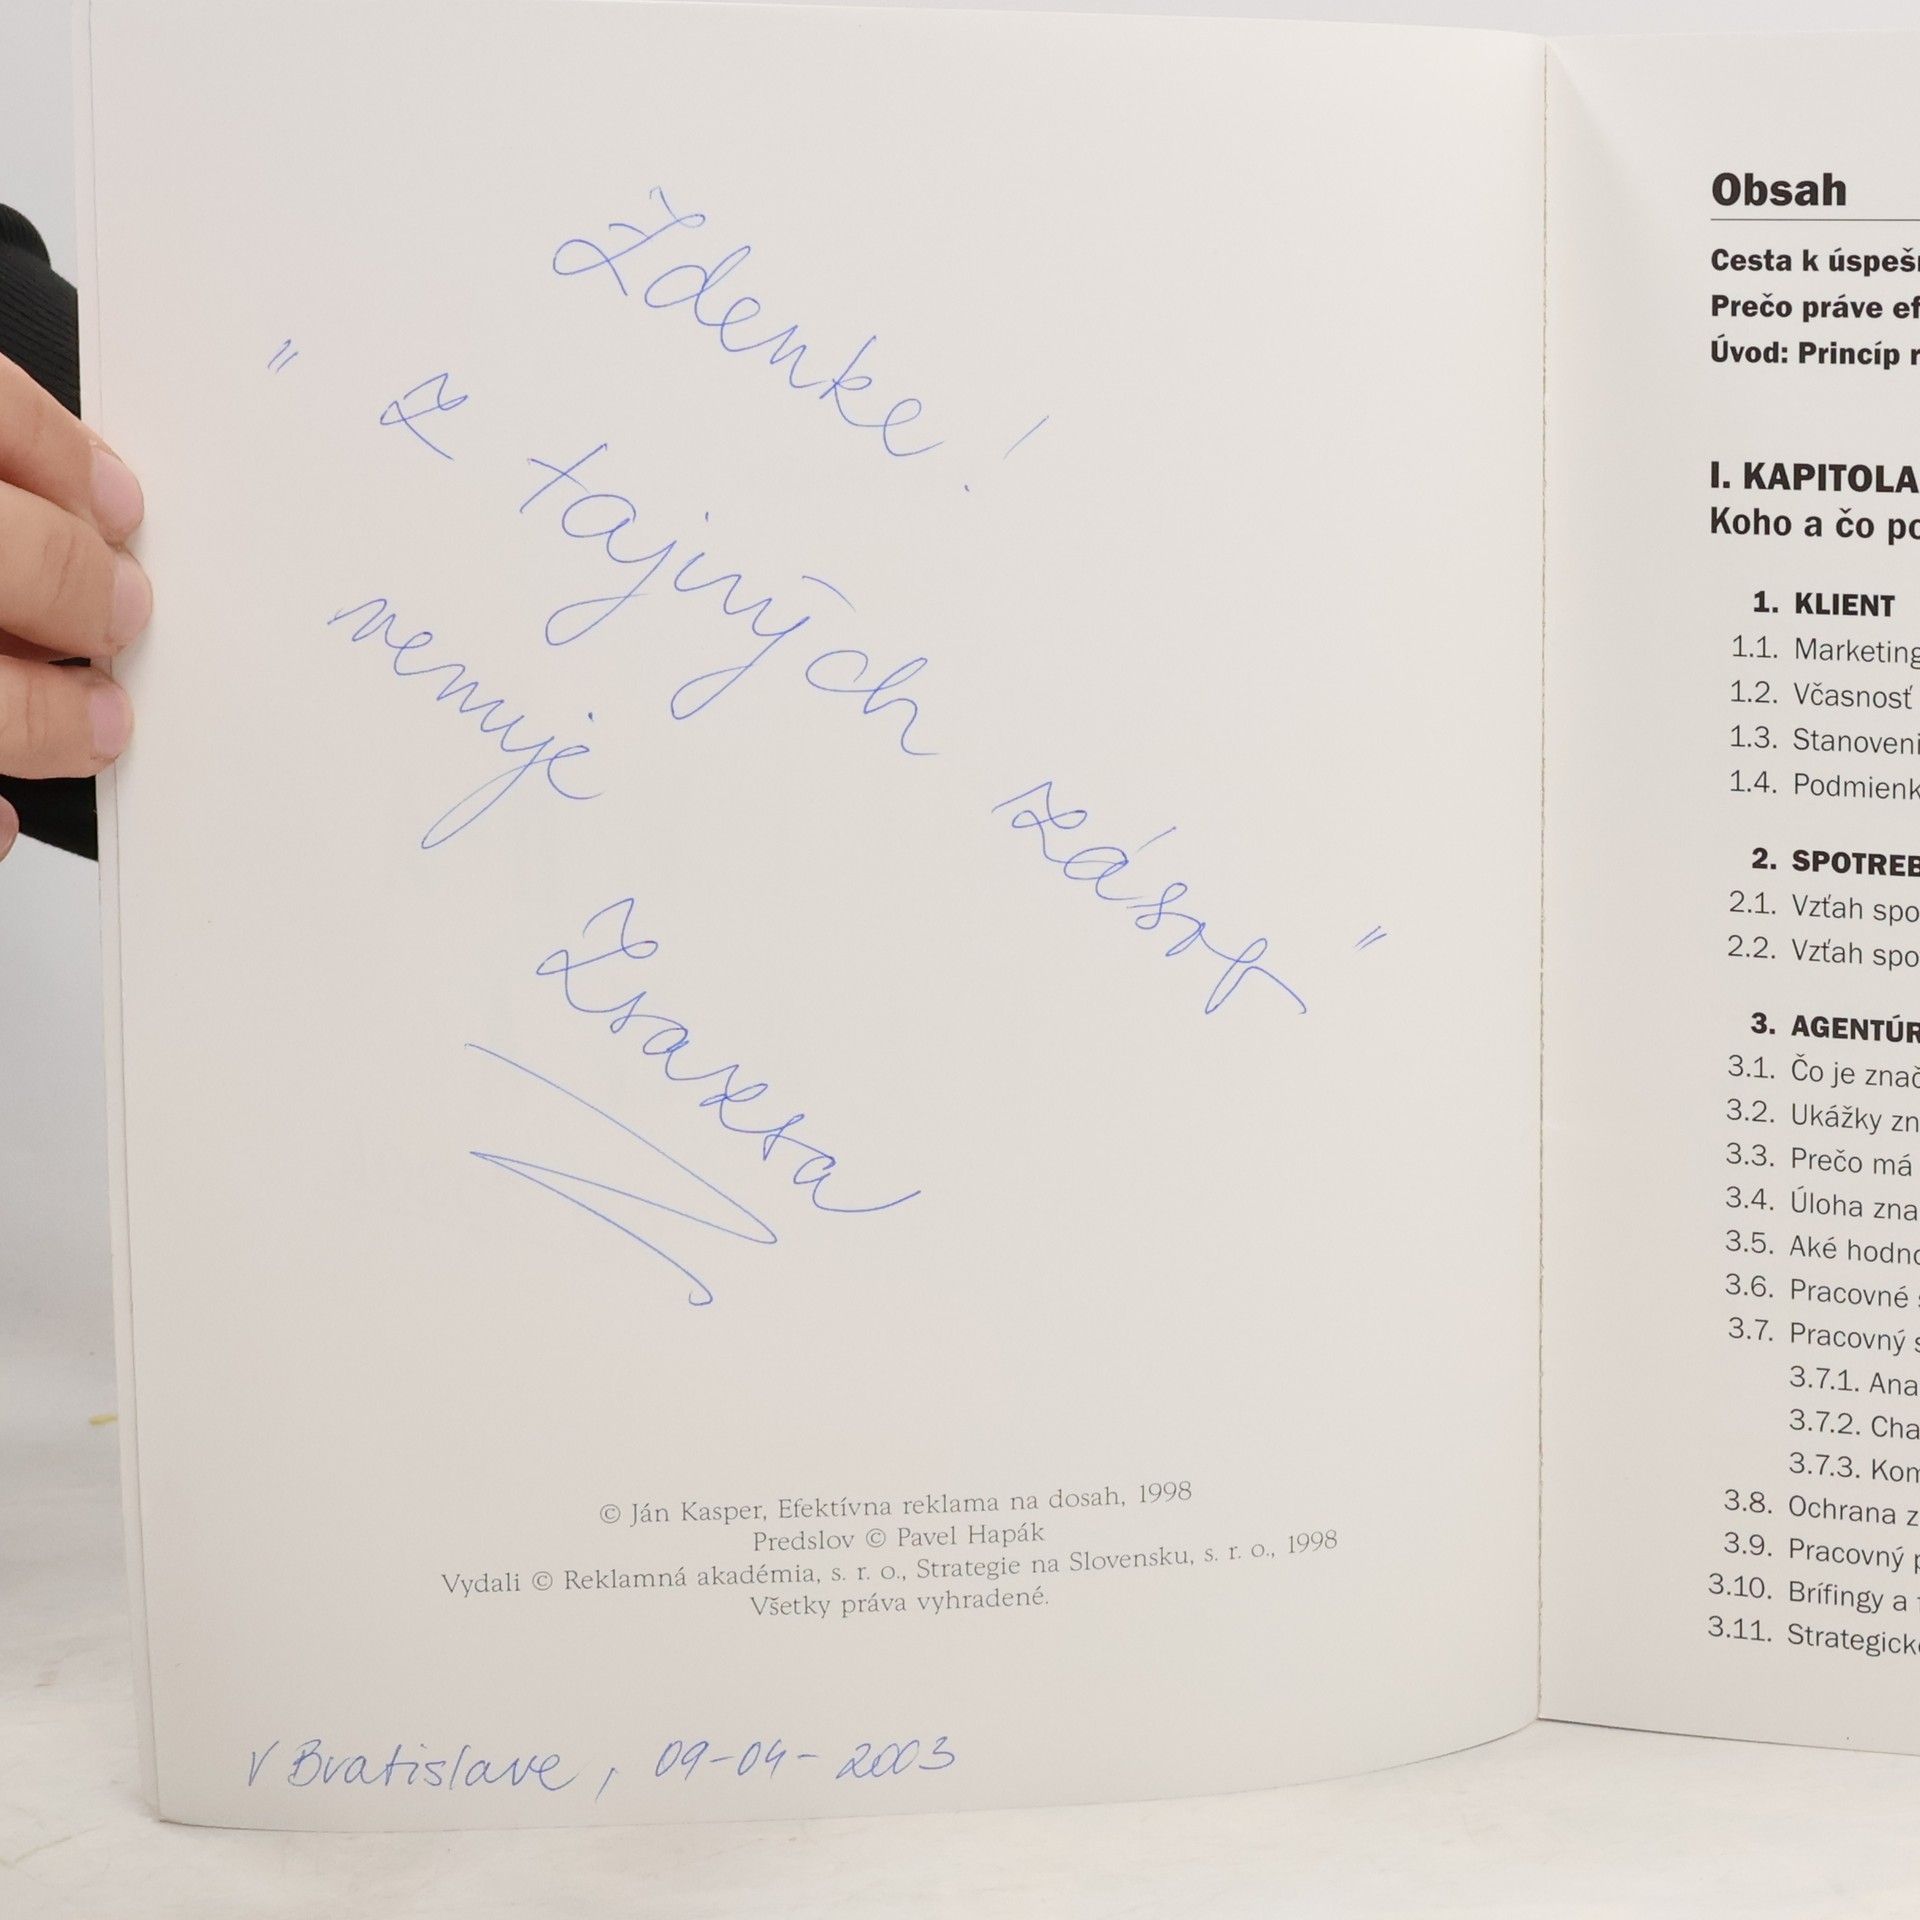 Zdenke!
" z tajných zásob "
venuje
Zuzana
© Ján Kasper, Efektívna reklama na dosah, 1998
Predslov © Pavel Hapák
Vydali © Reklamná akadémia, s. r. o., Strategie na Slovensku, s. r. o., 1998
Všetky práva vyhradené.
V Bratislave, 09-04-2003
Obsah
Cesta k úspeš
Prečo práve ef
Úvod: Princíp r
I. KAPITOLA
Koho a čo po
1. KLIENT
1.1. Marketing
1.2. Včasnosť
1.3. Stanoveni
1.4. Podmienk
2. SPOTREB
2.1. Vzťah spo
2.2. Vzťah spo
3. AGENTÚR
3.1. Čo je znač
3.2. Ukážky zn
3.3. Prečo má
3.4. Úloha zna
3.5. Aké hodno
3.6. Pracovné
3.7. Pracovný s
3.7.1. Ana
3.7.2. Cha
3.7.3. Kom
3.8. Ochrana z
3.9. Pracovný p
3.10. Brífingy a
3.11. Strategick